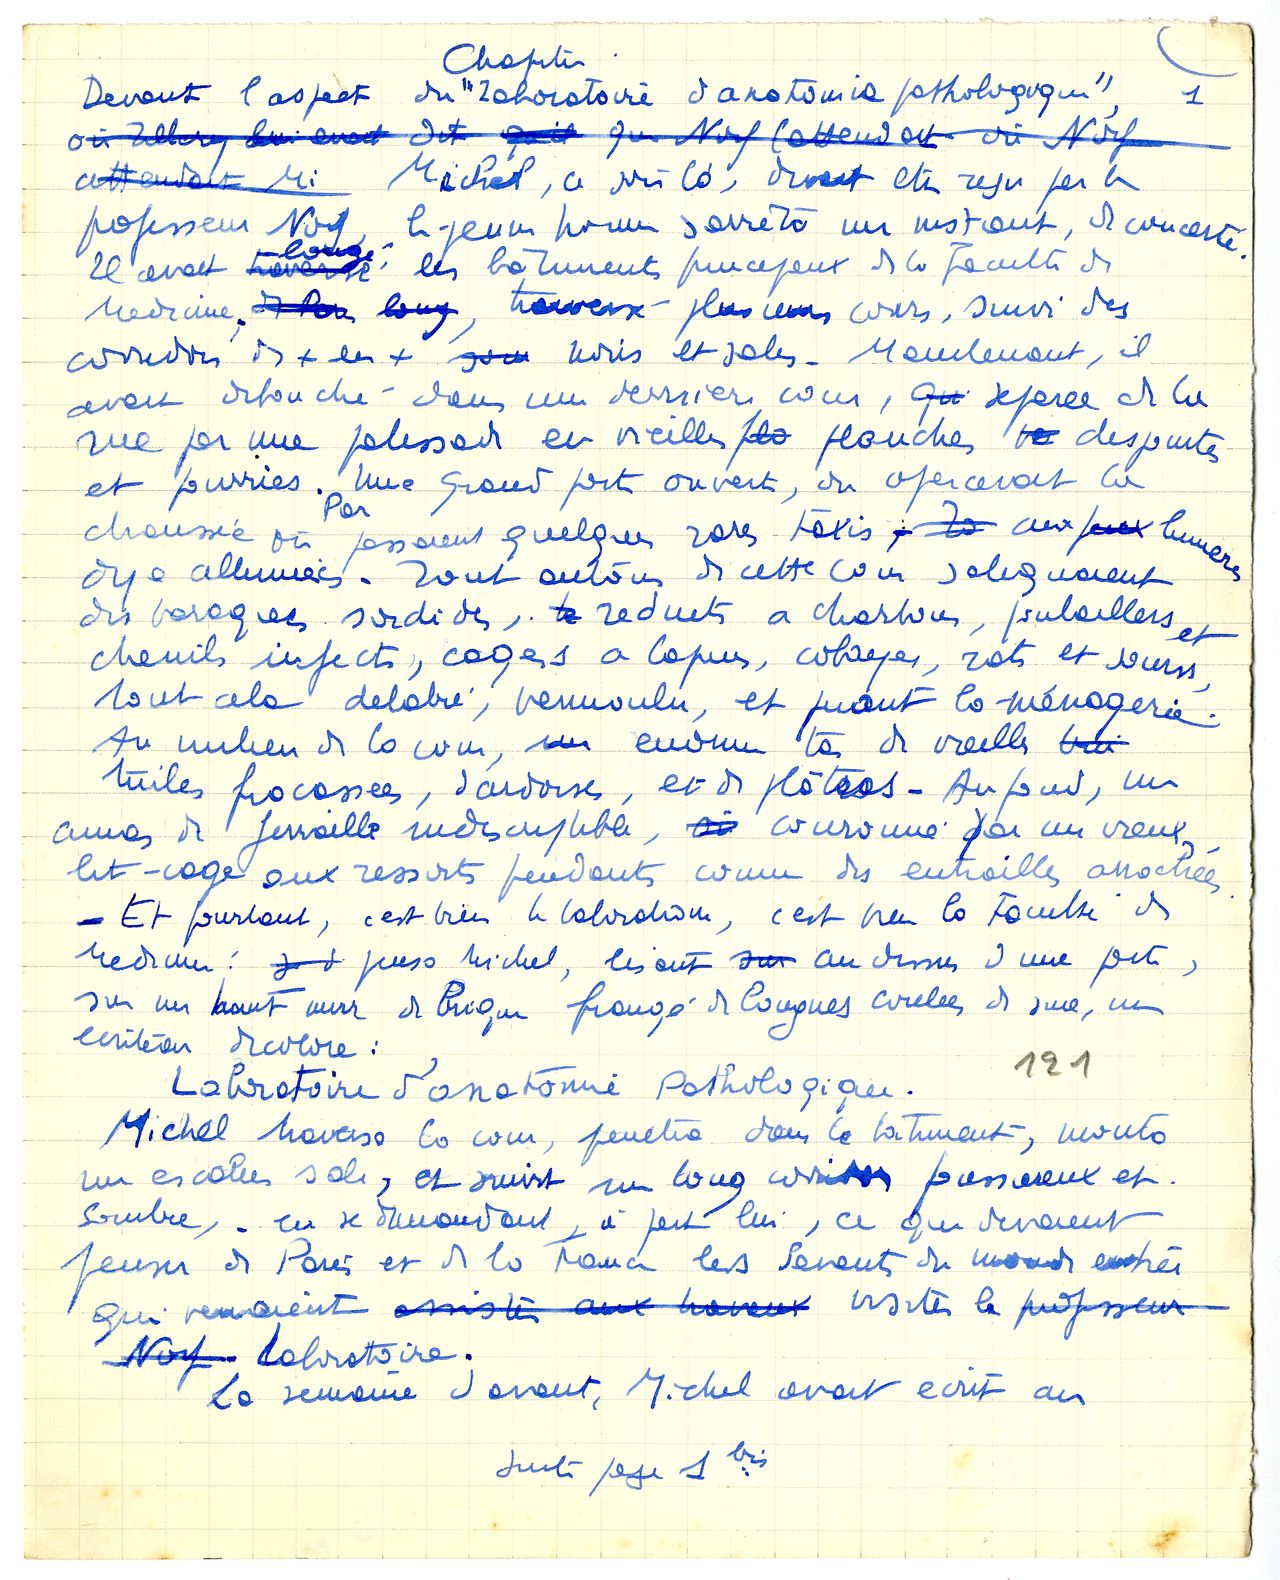 Chapitre
Devant l'aspect du "Laboratoire d'anatomie pathologique", 1
où Tillery lui avait dit qu'il que Norf l'attendait où Norf
attendait Mi Michel, ce soir là, devait être reçu par le
professeur Norf, le jeune homme s'arrêta un instant, déconcerté.
Il avait traversé longé les bâtiments principaux de la Faculté de
Médecine, long, traversé plusieurs cours, suivi des
corridors noirs et sales. Maintenant, il
avait débouché dans une dernière cour, qui séparée de la
rue par une palissade en vieilles pla planches disjointes
et pourries. Par une grande porte ouverte, on apercevait la
chaussée où passaient quelques rares taxis, aux feux lumières
déjà allumées. Tout autour de cette cour s'alignaient
des baraques sordides, réduits à charbons, poulaillers et
chenils infects, cages à lapins, cobayes, rats et souris,
tout cela délabré, vermoulu, et puant la ménagerie.
Au milieu de la cour, un énorme tas de vieilles
tuiles fracassées, d'ardoises, et de plâtras. Au fond, un
amas de ferraille indescriptible, couronné par un vieux
lit-cage aux ressorts pendants comme des entrailles arrachées.
- Et pourtant, c'est bien le laboratoire, c'est bien la Faculté de
Médecine! pensa Michel, lisant sur au dessus d'une porte,
sur un haut mur de brique frangé de longues coulées de suie, un
écriteau décoloré :
Laboratoire d'anatomie Pathologique.
121
Michel traversa la cour, pénétra dans le bâtiment, monta
un escalier sale, et suivit un long corridor poussiéreux et
sombre, en se demandant, à part lui, ce que devaient
penser de Paris et de la France les Savants du monde entier
qui venaient assister aux travaux visiter le professeur
Norf Laboratoire.
La semaine d'avant, Michel avait écrit au
suite page 1 bis